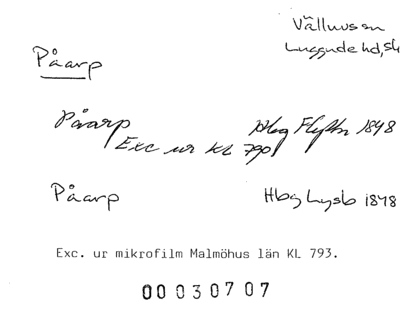 Välluvs sn
Luggude hd, Sk
Påarp
Påarp Hbg Flyttn 1848
Exc ur KL 790
Påarp Hbg Lysb 1848
Exc. ur mikrofilm Malmöhus län KL 793.
00030707